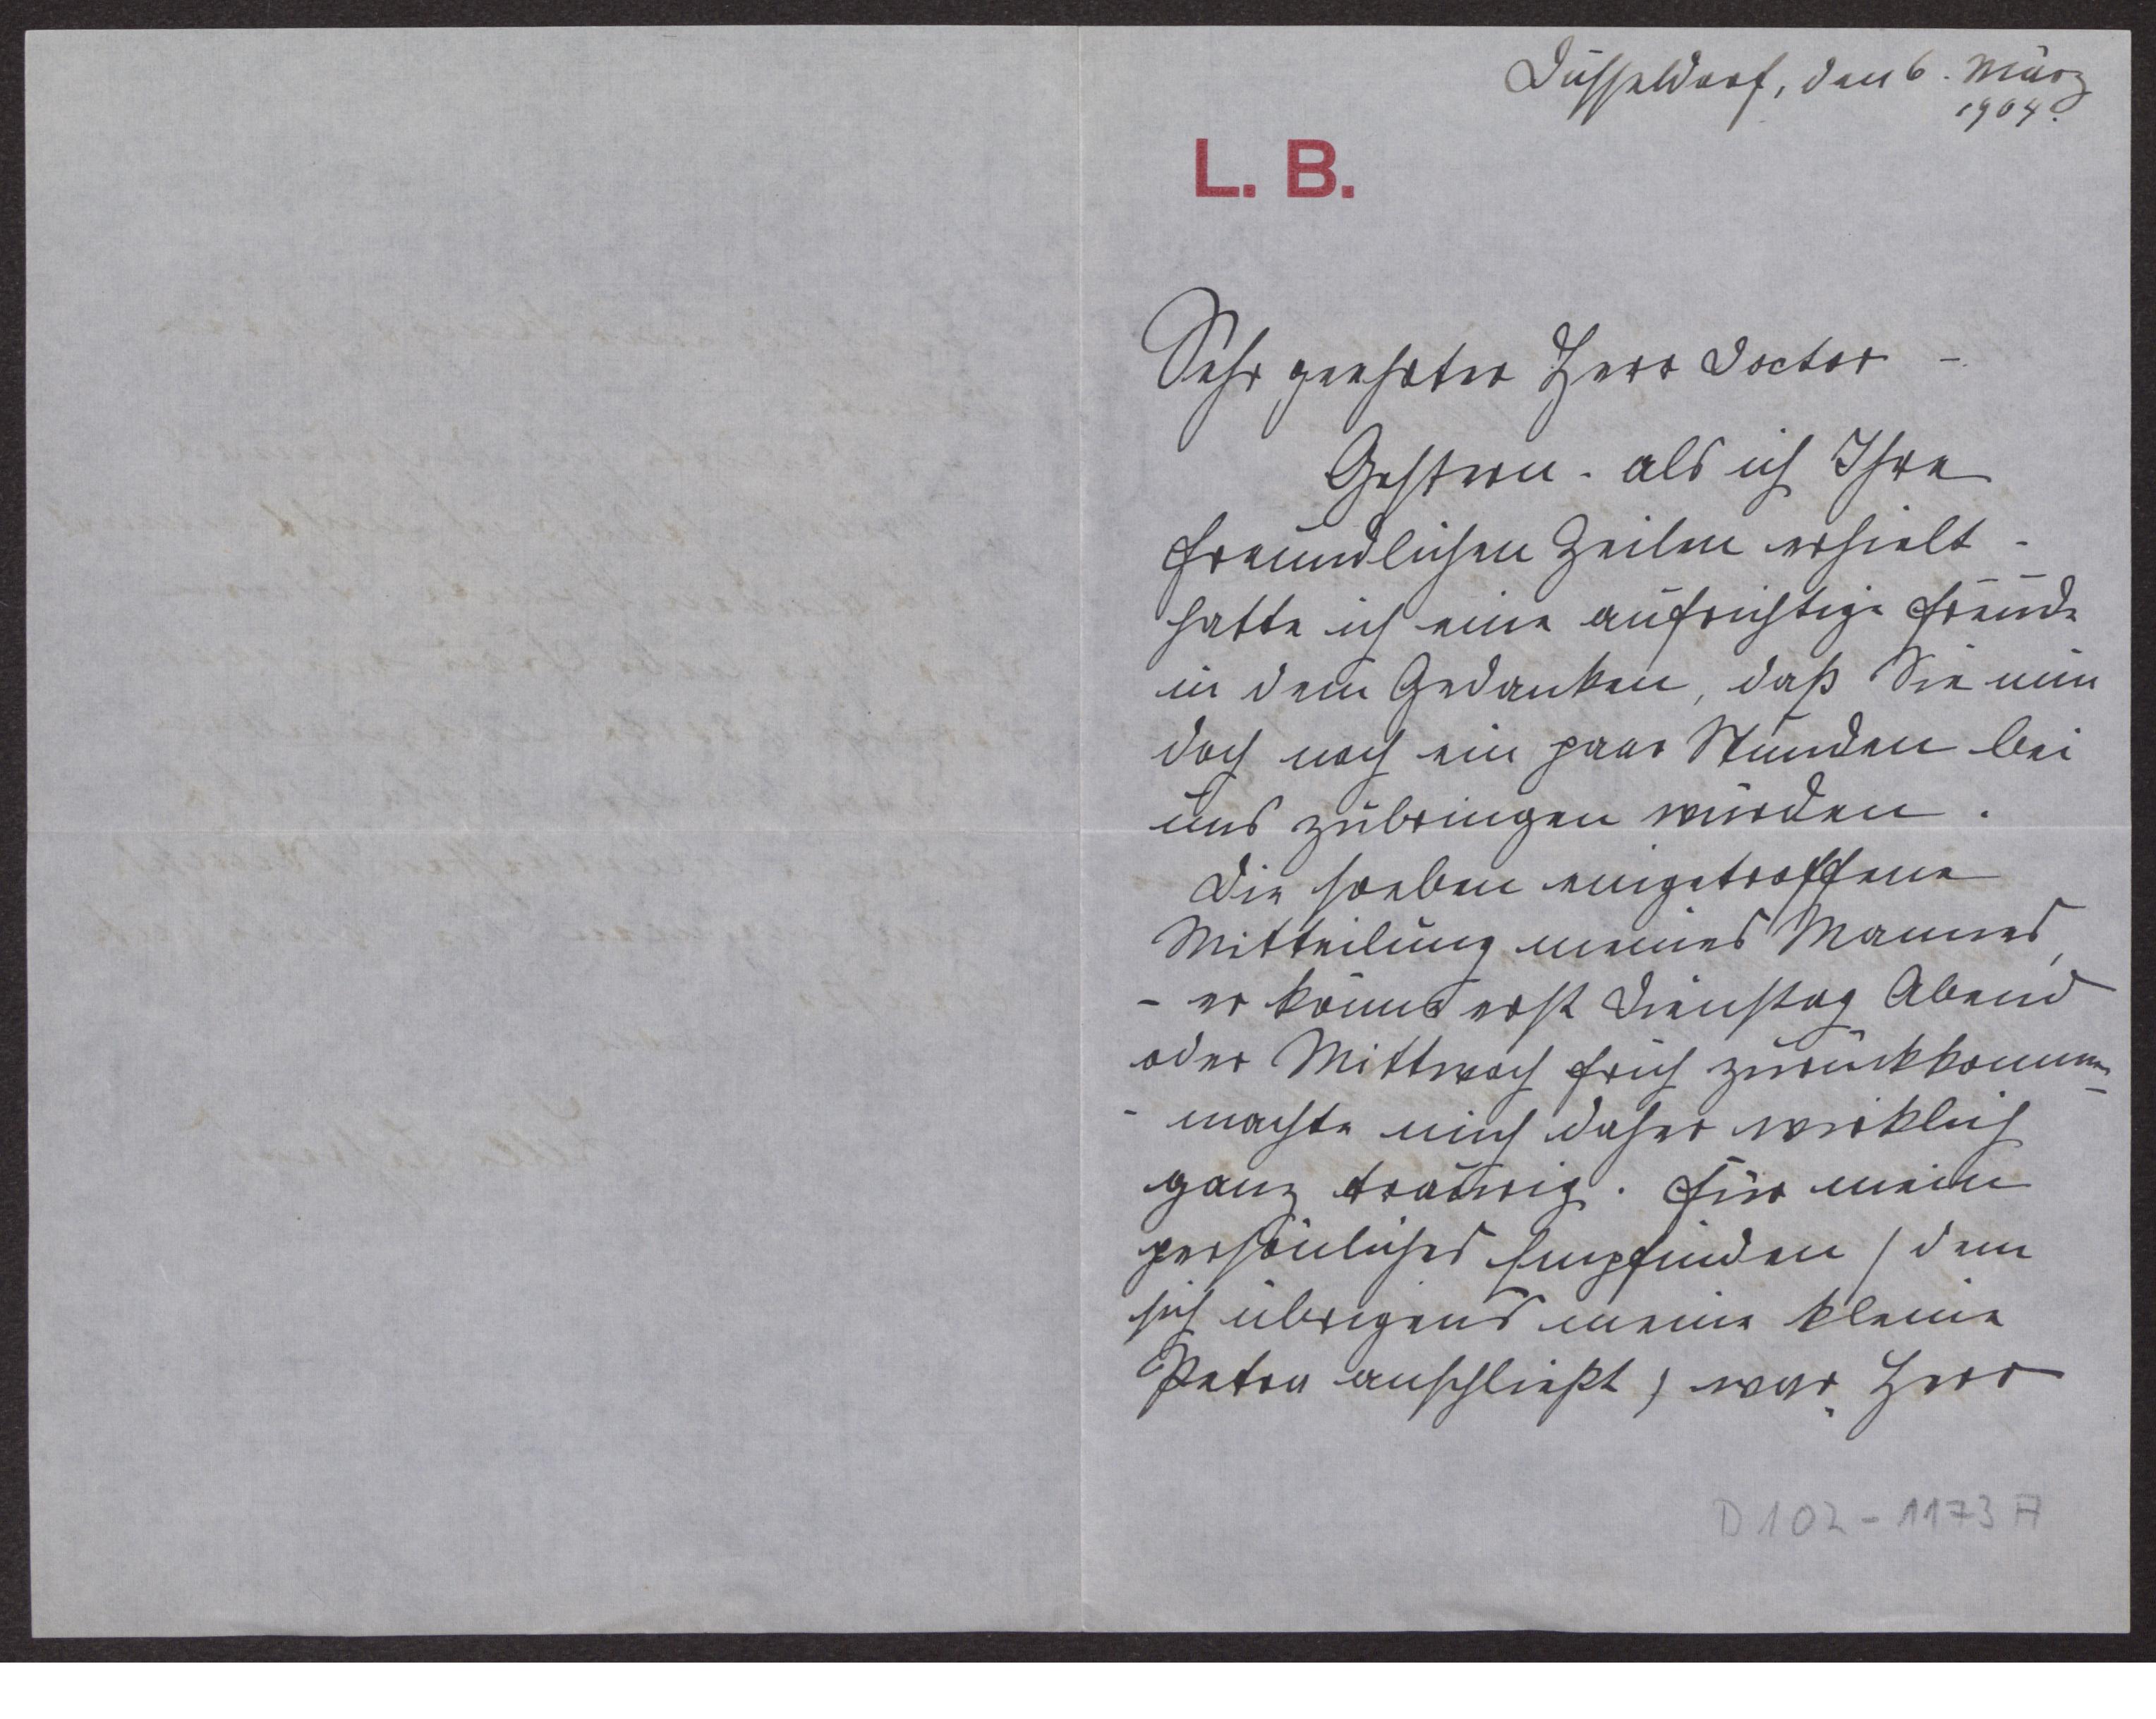 Düsseldorf, den 6. März
1904.
L. B.
Sehr geehrter Herr Doctor –
Gestern - als ich Ihre
freundlichen Zeilen erhielt -
hatte ich eine aufrichtige Freude
in dem Gedanken, daß Sie nun
doch noch ein paar Stunden bei
uns zubringen würden.
Die soeben eingetroffene
Mitteilung meines Mannes,
- er könne erst Dienstag Abend
oder Mittwoch früh zurückkommen
- machte mich daher wirklich
ganz traurig. Für mein
persönliches Empfinden (dem
sich übrigens meine kleine
Petra anschließt) war Herr
D 102 - 1173 A